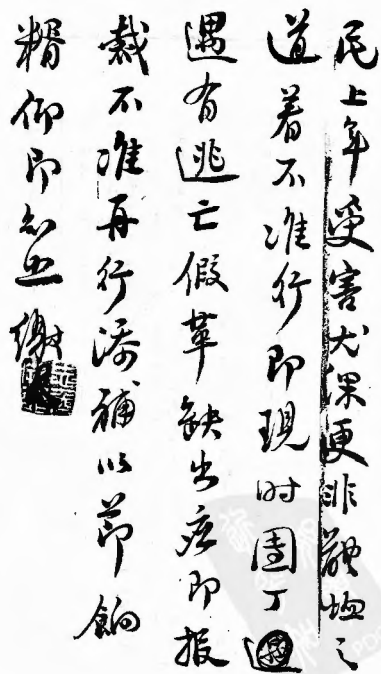 民上年受害尤深更非體恤之
道着不准行即現时團丁
遇有逃亡假革缺出应即报
裁不准再行添補以節餉
糈仰即知照繳